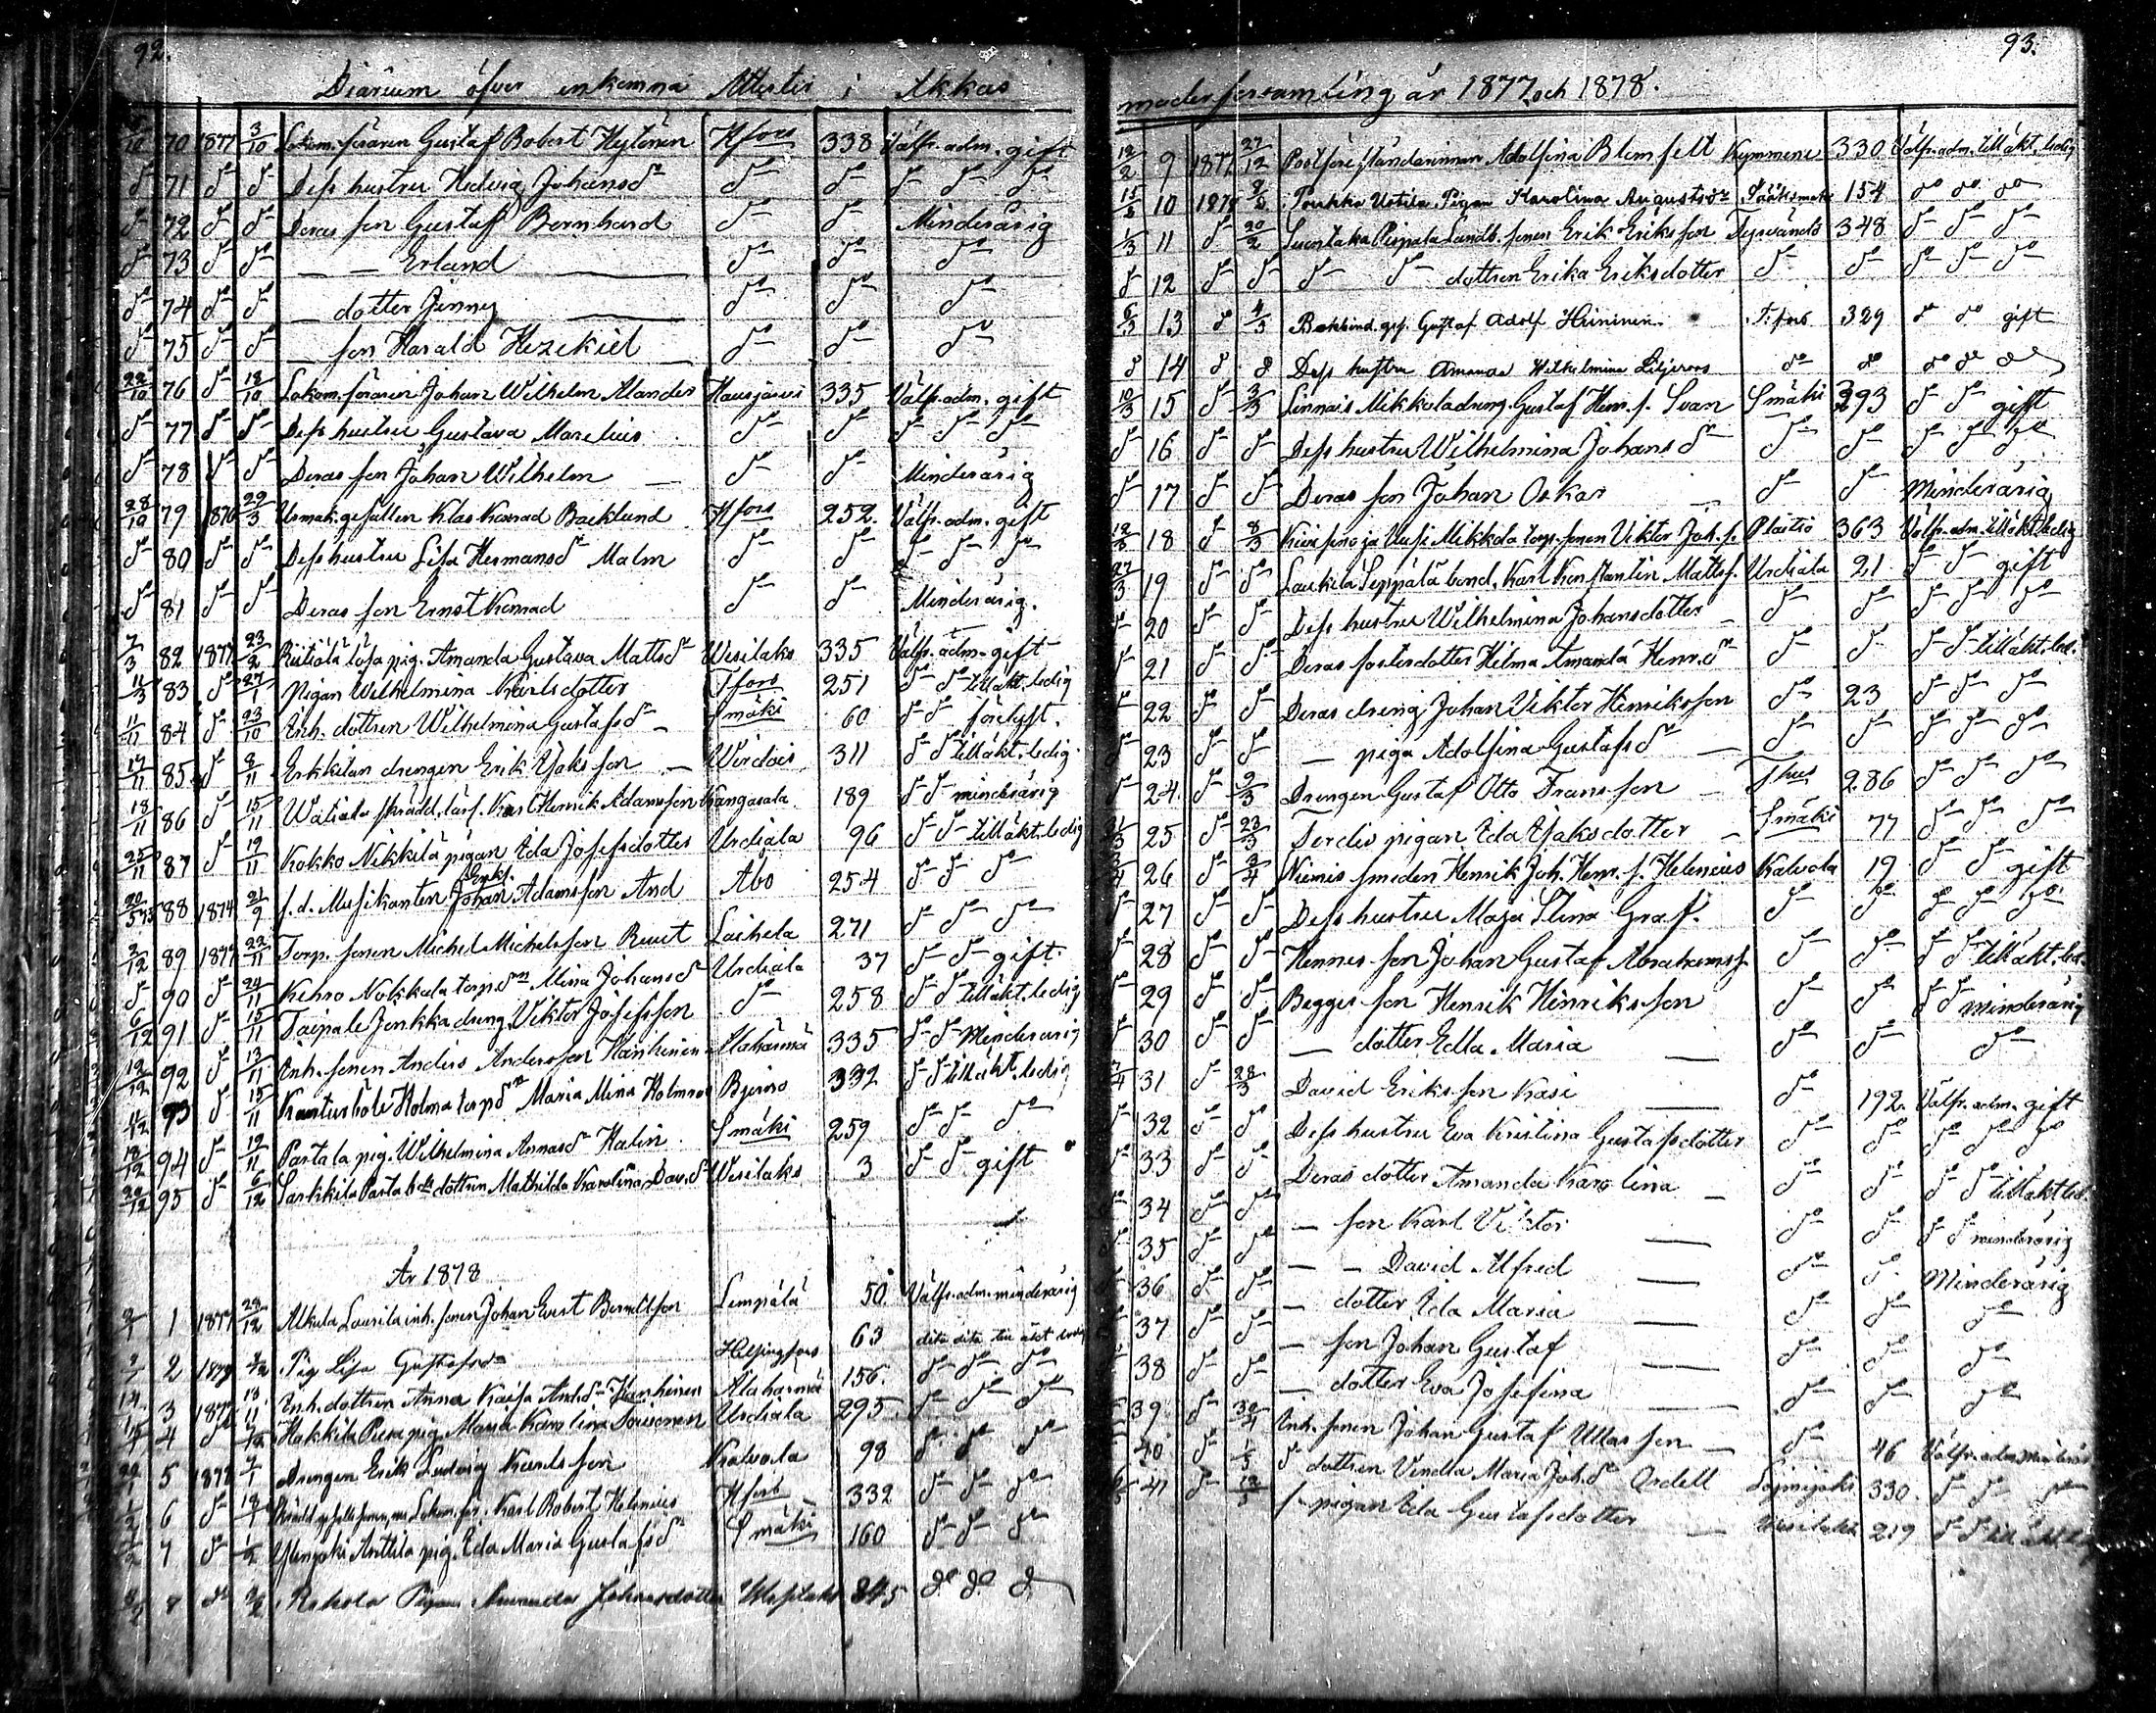 92.
Diarium öfver inkomna Attester i Akkas
10 70 1877 3/10 Lokom.föraren Gustaf Robert Hytönen Hfors 338 Välfr. adm. gift
do 71 do do Dess hustru Hedvig Johansdr do do do do do
do 72 do do Deras son Gustaf Bernhard do do Minderårig
do 73 do do — — Erland — do do do
do 74 do do — dotter Jenny — do do do
do 75 do do — son Harald Hezekiel — do do do
22/10 76 do 18/10 Lokom.föraren Johan Wilhelm Alander Hausjärvi 335 Välfr. adm. gift
do 77 do do Dess hustru Gustava Marelius do do do do do
do 78 do do Deras son Johan Wilhelm — do do Minderårig
28/10 79 1876 29/3 Urmak.gesällen Klas Konrad Backlund Hfors 252. Välfr. adm. gift
do 80 do do Dess hustru Lisa Hermansdr Malm do do do do do
do 81 do do Deras son Ernst Konrad do do Minderårig.
7/3 82 1877 23/2 pig. Amanda Gustava Mattsdr Wesilaks 335 Välfr. adm. gift
11/3 83 do 27/1 pigan Wilhelmina Karlsdotter Tfors 251 do do till äkt. ledig
11/11 84 do 23/10 Inh. dottren Wilhelmina Gustafsdr — Smäki 60 do do
17/11 85 do 8/11 Erkkilan drengen Erik Isaksson — Wirdois 311 do do till äkt. ledig
18/11 86 do 15/11 Karl Henrik Adamsson Kangasala 189 do do minderårig
25/11 87 do 19/11 Kokko Nikkilä pigan Ida Josefsdotter Urdiala 96 do do till äkt. ledig
88 1874 21/9 f.d. Musikanten Johan Adamsson And Åbo 254 do do do
2/12 89 1877 22/11 Torp.sonen Michel Michelsson Ruut Laihela 271 do do do
do 90 do 24/11 Kehro Nokkala torp.dr Mina Johansdr Urdiala 37 do do gift.
6/12 91 do 15/11 Taipale Jonkka dreng Viktor Josefsson do 258 do do till äkt. ledig
12/12 92 do 13/11 Inh. sonen Anders Andersson Hanhinen Alahärmä 335 do do Minderårig
93 do 15/11 Holma torp.dr Maria Mina Bjerno 332 do do till äkt. ledig
18/12 94 do 12/11 Partala pig. Wilhelmina Annasdr Halin Smäki 259 do do do
20/12 95 do 6/12 dottren Mathilda Karolina Dav.dr Wesilaks 3 do do gift
År 1878
1 1877 28/12 Alkula Laurila inh. sonen Johan Evert Berndtsson Lempälä 50. Välfr. adm. minderårig
2 1878 Pig Lisa Gustafsdr Helsingfors 63 dito dito till äkt ledig
3 1877 13/11 Inh. dottren Anna Kaisa And.dr Hanhinen Alahärmä 156. do do do
4 do pig. Maria Karolina Urdiala 295 do do do
5 1878 Drengen Erik Ludvig Kalvola 98 do do do
6 do Karl Robert Helenius Hfors 332 do do do
7 do 1/2 Ylenjoki Anttila pig. Ida Maria Gustafsdr Smäki 160 do do do
8 do Pigan Amanda Johansdotter Wesilaks 345 do do do
93.
moderförsamling år 1877 och 1878.
12/2 9 1877 27/12 Postföreståndarinnan Adolfina Blomfelt Kymmene 330 Välfr. adm. till äkt. ledig
15/2 10 1878 Pigan Karolina Augustsdr Sääksmäki 154 do do do
1/3 11 do 20/2 Landb. sonen Erik Eriksson Tyrvändö 348 do do do
do 12 do do do do dottren Erika Eriksdotter do do do do do
6/3 13 do 4/3 Bokbind. ges. Gustaf Adolf Heininen. T.fors 329 do do gift
do 14 do do Dess hustru Amanda Wilhelmina Liljeroos do do do do do
10/3 15 do 3/3 Linnais Mikkola dreng. Gustaf Henr. s. Svan Smäki 393 do do gift
do 16 do do Dess hustru Wilhelmina Johansdr do do do do do
do 17 do do Deras son Johan Oskar — do do Minderårig
18 do 8/3 Mikkola torp. sonen Viktor Joh. s. Plaitis 363 Välfr. adm. till äkt. ledig
27/3 19 do do Laukela Seppälä bond. Karl Konstantin Mattss. Urdiala 21 do do gift
do 20 do do Dess hustru Wilhelmina Johansdotter — do do do do do
do 21 do do Deras fosterdotter Hilma Amanda Henr.dr do do do do till äkt. led.
do 22 do do Deras dreng Johan Viktor Henriksson do 23 do do do
do 23 do do — piga Adolfina Gustafsdr — do do do do do
do 24. do 9/3 Drengen Gustaf Otto Fransson — Thus 286 do do do
25 do 23/3 Terdis pigan Ida Isaksdotter — Smäki 77 do do do
26 do 2/4 Niemis smeden Henrik Joh. Henr. s. Helenius Kalvola 19 do do gift
do 27 do do Dess hustru Maja Stina Graf. do do do do do
do 28 do do Hennes son Johan Gustaf Abrahamss. do do do do till äkt. led.
do 29 do do Begges son Henrik Henriksson do do do do Minderårig
do 30 do do — dotter Edla Maria — do do do
7/4 31 do 28/3 David Eriksson Kasi — do 192. Välfr. adm. gift
do 32 do do Dess hustru Eva Kristina Gustafsdotter do do do do do
do 33 do do Deras dotter Amanda Karolina — do do do do till äkt led.
do 34 do do — son Karl Viktor — do do do do minderårig
do 35 do do — — David Alfred — do do Minderårig
36 do do — dotter Ida Maria — do do do
37 do do — son Johan Gustaf — do do do
38 do do — dotter Eva Josefina — do do do
39. do 30/4 Inh. sonen Johan Gustaf Ullasson — do 46 Välfr. adm. Minderår
40 do do dottren Vendla Maria Joh.dr Ordell 330. do do do
41 do pigan Ida Gustafsdotter — Wesilaks 219 do do till äkt. ledig